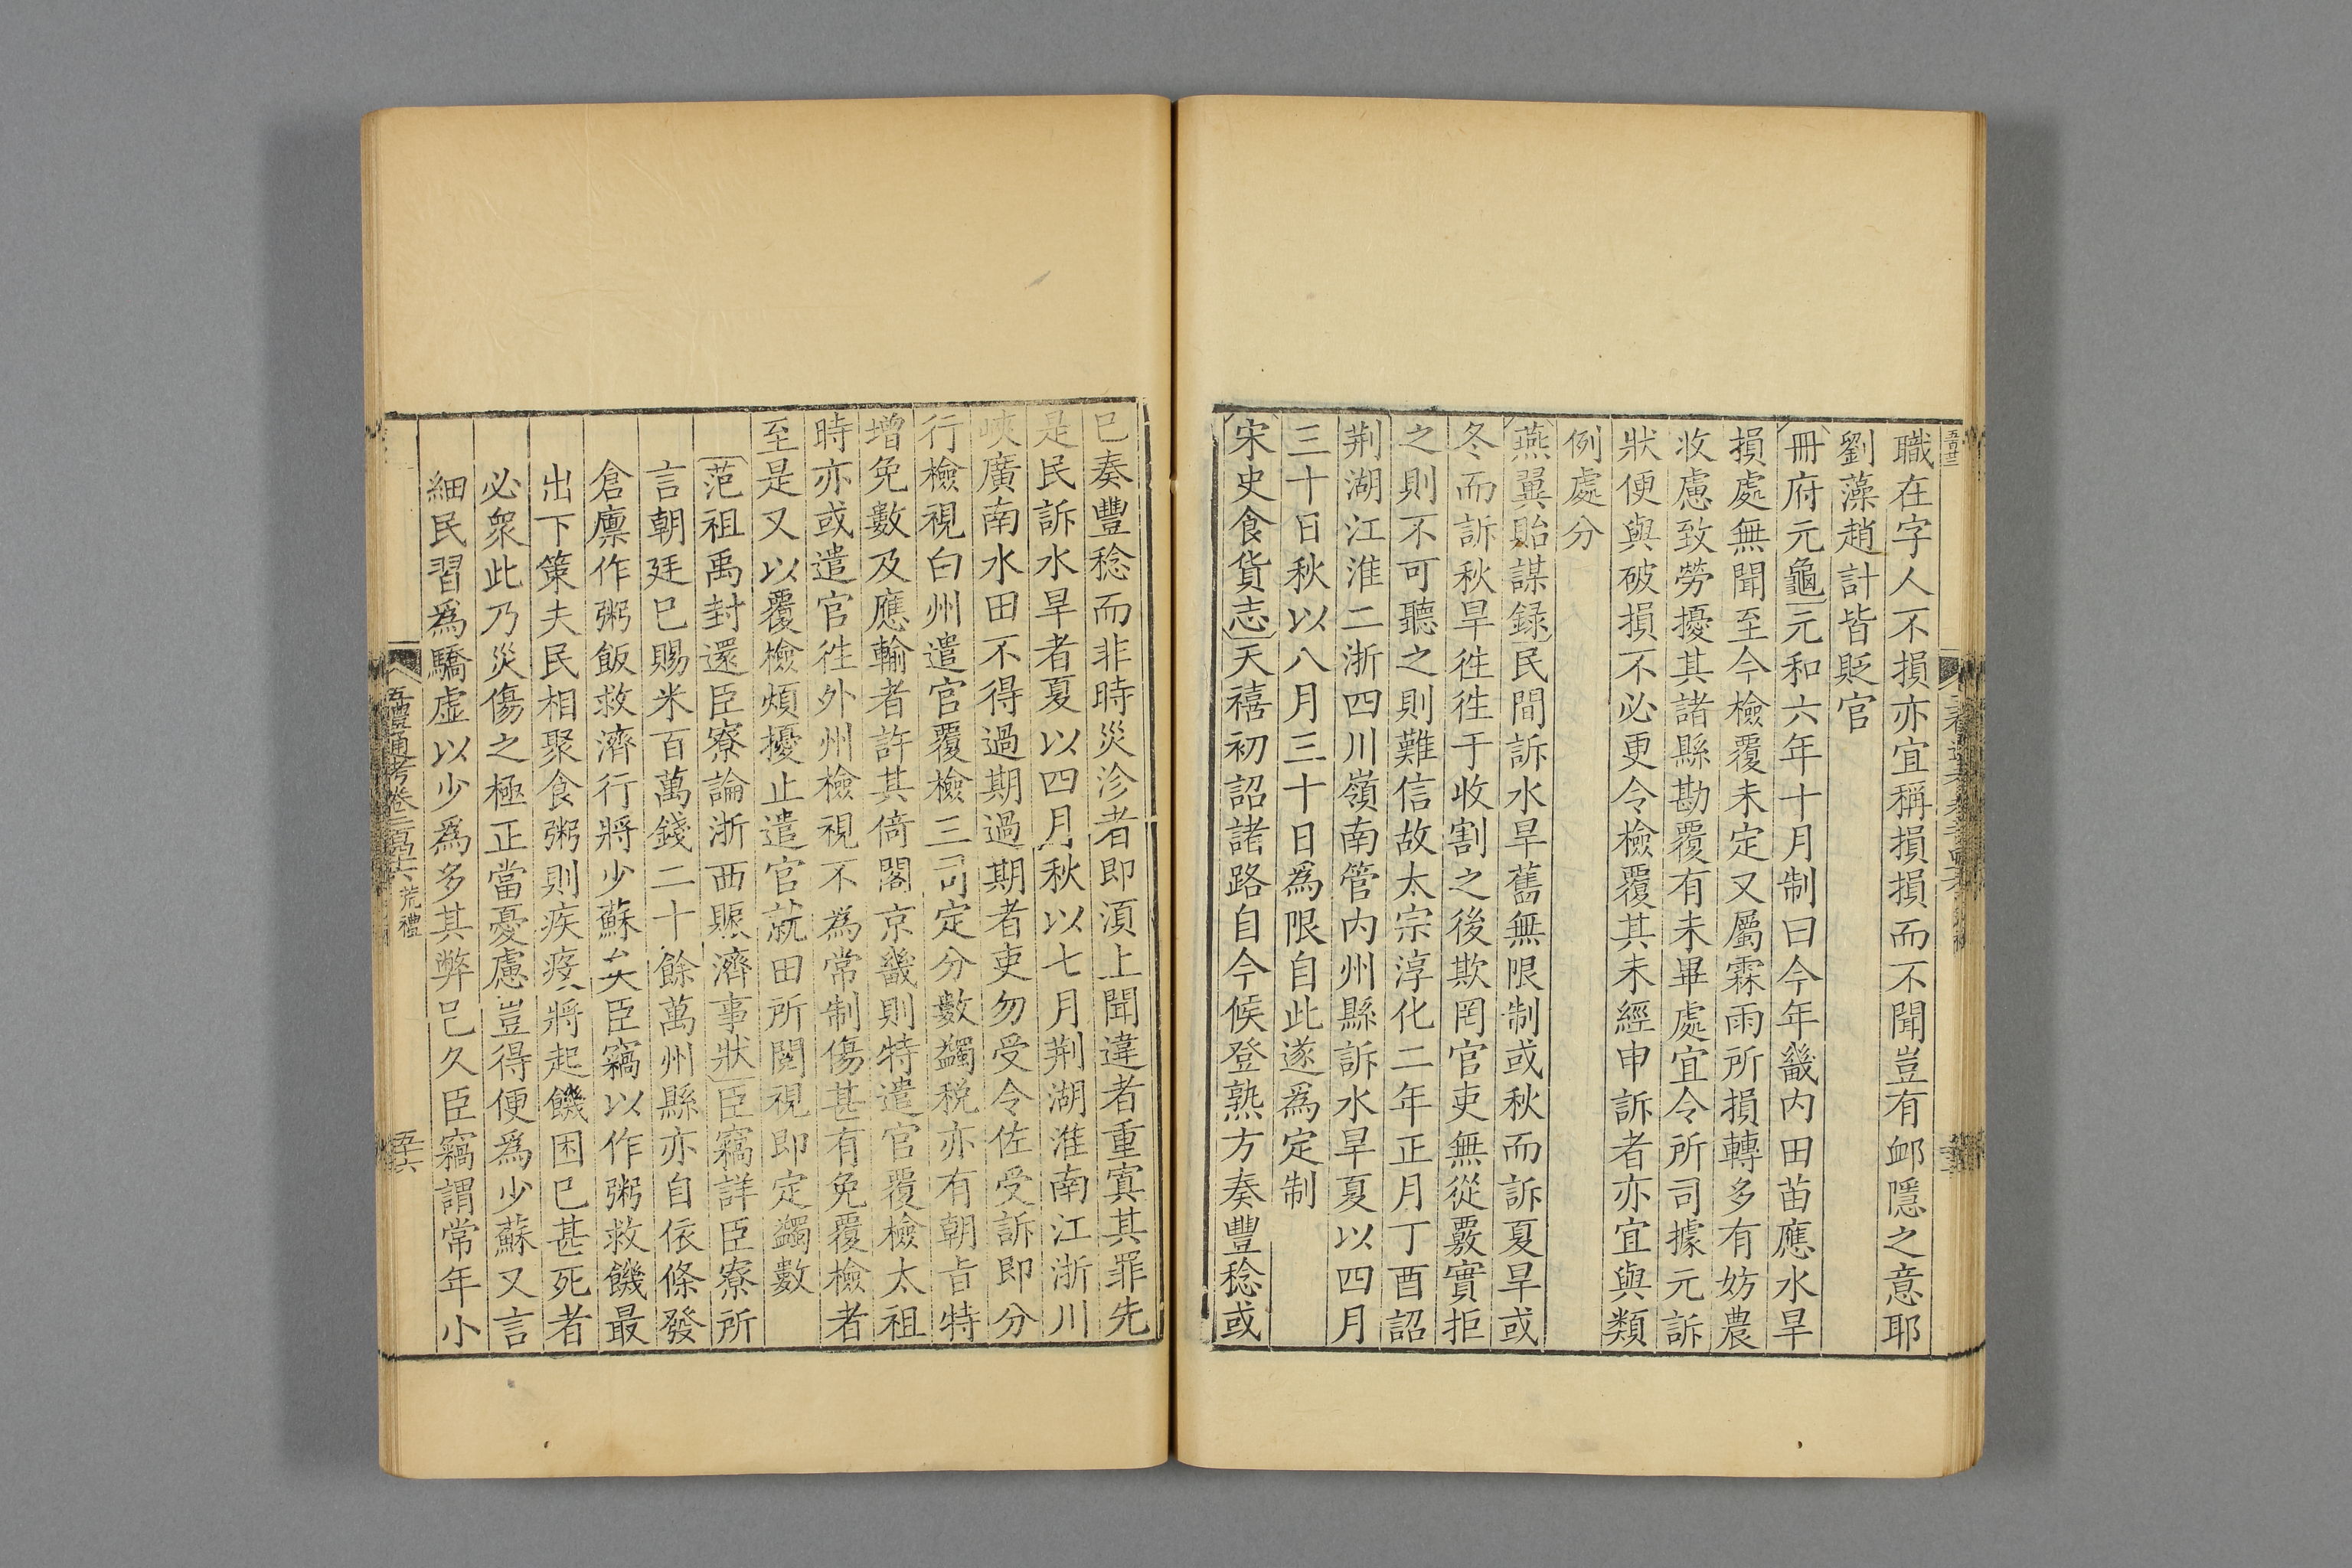 職在字人不損亦宜稱損損而不聞豈有卹隱之意耶
劉藻趙計皆貶官
冊府元龜元和六年十月制曰今年畿内田苗應水旱
損處無聞至今檢覆未定又屬霖雨所損轉多有妨農
收慮致勞擾其諸縣勘覆有未畢處宜令所司據元訴
狀便與破損不必更令檢覆其未經申訴者亦宜與類
例處分
燕翼貽謀録民間訴水旱舊無限制或秋而訴夏旱或
冬而訴秋旱徃徃于收割之後欺罔官吏無從覈實拒
之則不可聽之則難信故太宗淳化二年正月丁酉詔
荆湖江淮二浙四川嶺南管内州縣訴水旱夏以四月
三十日秋以八月三十日為限自此遂為定制
宋史食貨志天禧初詔諸路自今候登熟方奏豐稔或
已奏豐稔而非時災沴者即湏上聞違者重寘其罪先
是民訴水旱者夏以四月秋以七月荆湖淮南江浙川
峽廣南水田不得過期過期者吏勿受令佐受訴即分
行檢視白州遣官覆檢三司定分數蠲税亦有朝旨特
增免數及應輸者許其倚閣京畿則特遣官覆檢太祖
時亦或遣官徃外州檢視不為常制傷甚有免覆檢者
至是又以覆檢煩擾止遣官就田所閱視即定蠲數
范祖禹封還臣寮論浙西賑濟事狀臣竊詳臣寮所
言朝廷已賜米百萬錢二十餘萬州縣亦自依條發
倉廩作粥飯救濟行將少蘇矣臣竊以作粥救饑最
出下策夫民相聚食粥則疾疫將起饑困已甚死者
必衆此乃災傷之極正當憂慮豈得便為少蘇又言
細民習為驕虛以少為多其弊已久臣竊謂常年小
五禮通考卷二百四十六 荒禮
五十六